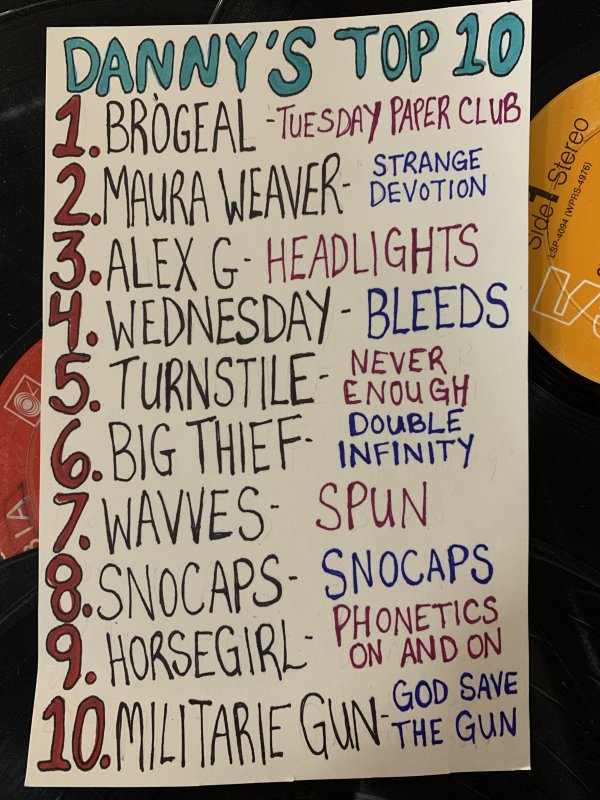 DANNY'S TOP 10
1. BRÒGEAL - TUESDAY PAPER CLUB
2. MAURA WEAVER - STRANGE
DEVOTION
3. ALEX G - HEADLIGHTS
4. WEDNESDAY - BLEEDS
5. TURNSTILE - NEVER
ENOUGH
6. BIG THIEF - DOUBLE
INFINITY
7. WAVVES - SPUN
8. SNOCAPS - SNOCAPS
9. HORSEGIRL - PHONETICS
ON AND ON
10. MILITARIE GUN - GOD SAVE
THE GUN
Side 1 Stereo
LSP-4094 (WPRS-4976)